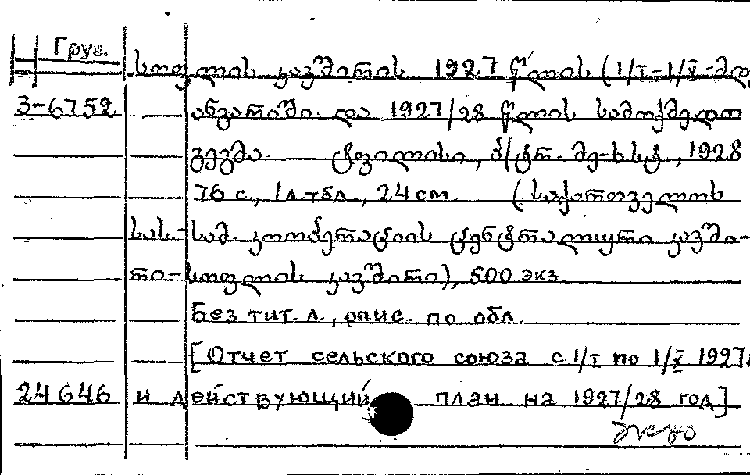 Груз.
სოფლის კავშირის 1927 წლის (1/I-1/X-მდე
3-6752 ანგარიში და 1927/28 წლის სამოქმედო
გეგმა. ტფილისი, პ/ტრ. მე-ხსტ., 1928
76 с., 1л.табл., 24 cm. (საქართველოს
სას.-სამ. კოოპერაციის ცენტრალური კავში-
რი-სოფლის კავშირი), 500 экз
Без тит. л., опис. по обл.
[Отчет сельского союза с 1/I по 1/X 1927г.
24646 и действующий план на 1927/28 год]